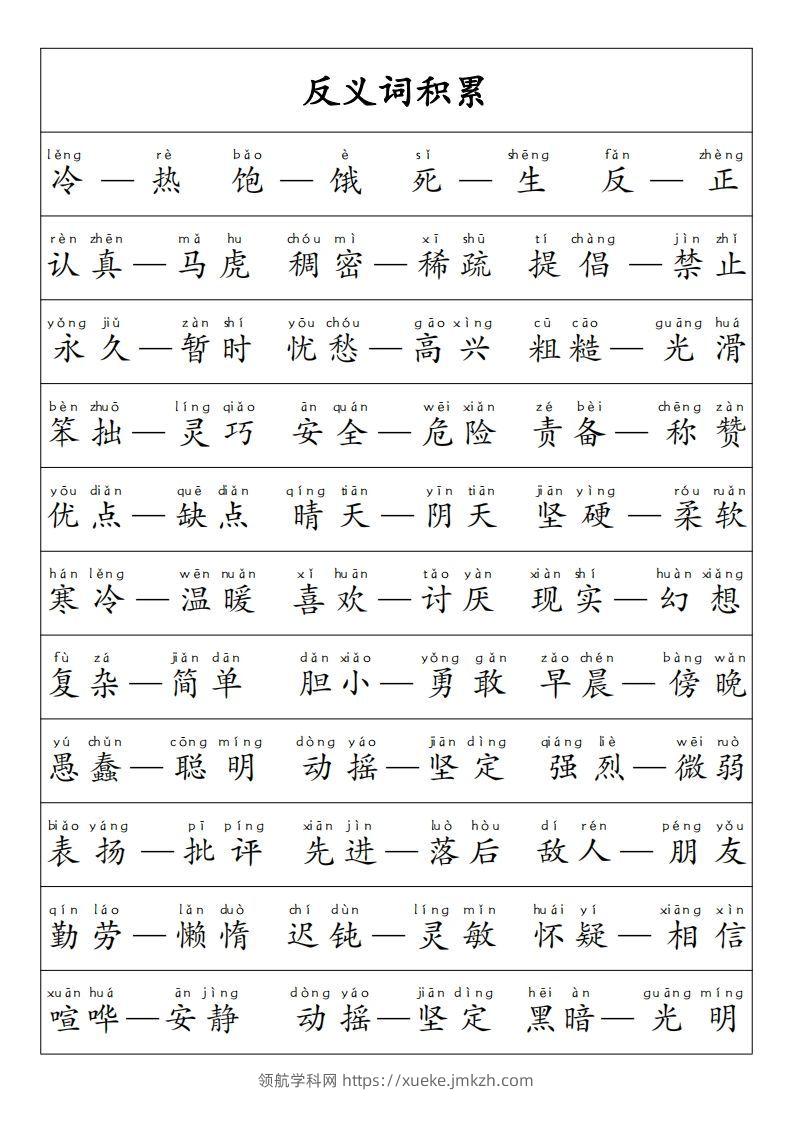 反义词积累
lěng rè bǎo è sǐ shēng fǎn zhèng
冷—热 饱—饿 死—生 反—正
rèn zhēn mǎ hu chóu mì xī shū tí chàng jìn zhǐ
认真—马虎 稠密—稀疏 提倡—禁止
yǒng jiǔ zàn shí yōu chóu gāo xìng cū cāo guāng huá
永久—暂时 忧愁—高兴 粗糙—光滑
bèn zhuō líng qiǎo ān quán wēi xiǎn zé bèi chēng zàn
笨拙—灵巧 安全—危险 责备—称赞
yōu diǎn quē diǎn qíng tiān yīn tiān jiān yìng róu ruǎn
优点—缺点 晴天—阴天 坚硬—柔软
hán lěng wēn nuǎn xǐ huān tǎo yàn xiàn shí huàn xiǎng
寒冷—温暖 喜欢—讨厌 现实—幻想
fù zá jiǎn dān dǎn xiǎo yǒng gǎn zǎo chén bàng wǎn
复杂—简单 胆小—勇敢 早晨—傍晚
yú chǔn cōng míng dòng yáo jiān dìng qiáng liè wēi ruò
愚蠢—聪明 动摇—坚定 强烈—微弱
biǎo yáng pī píng xiān jìn luò hòu dí rén péng yǒu
表扬—批评 先进—落后 敌人—朋友
qín láo lǎn duò chí dùn líng mǐn huái yí xiāng xìn
勤劳—懒惰 迟钝—灵敏 怀疑—相信
xuān huá ān jìng dòng yáo jiān dìng hēi àn guāng míng
喧哗—安静 动摇—坚定 黑暗—光明
领航学科网 https://xueke.jmkzh.com